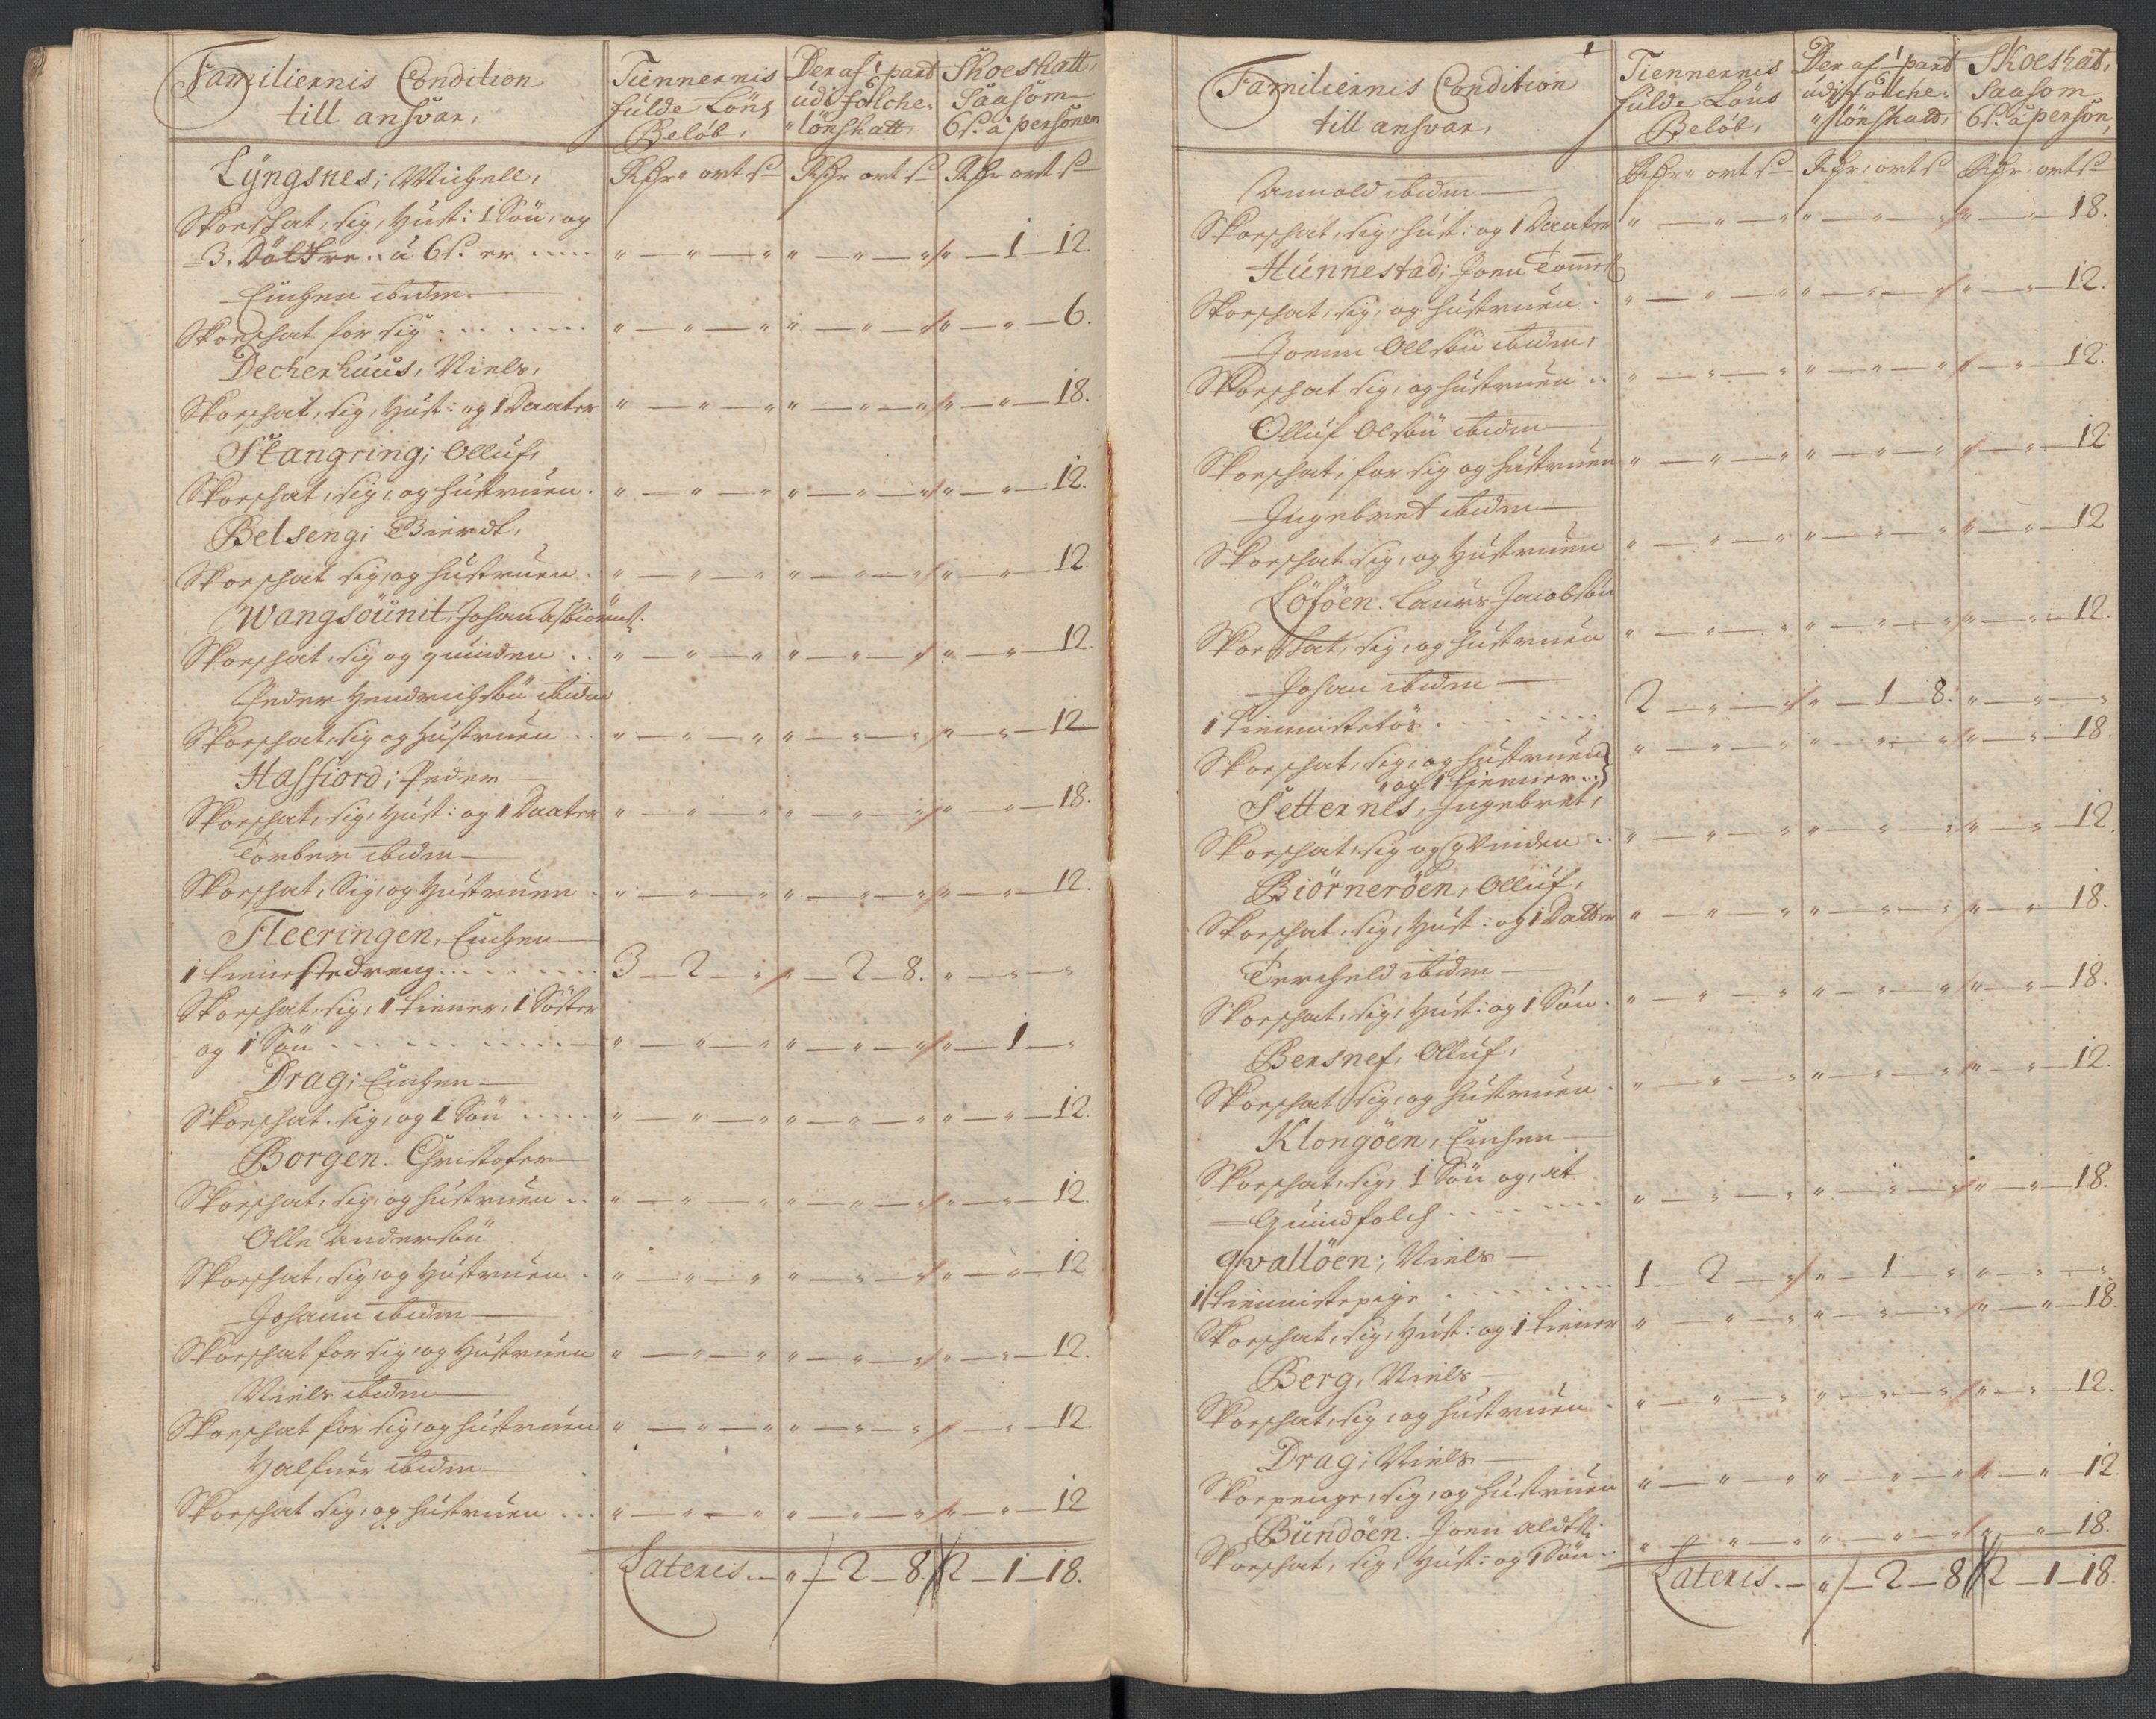 Familiernis Condition
till ansvar,
Tiennernis
fulde Löns
Belöb,
Der af 1/6 part
udi folche-
lönshatt,
Skoeshatt,
Saasom
6 s. à personen
Rdr ort s Rdr ort s Rdr ort s
Lÿngsnes; Michell,
Skoeschat, sig, Hust: 1 Sön, og
3. Döttre. à 6 s. er ..... " — " — " " — " — " " — 1 — 12.
Einchen ibidm
Skoeschat for sig ...... " — " — " " — " — " " — " — 6.
Decherhuus, Niels,
Skoeschat, sig, Hust: og 1 Daater " — " — " " — " — " " — " — 18.
Stangring; Olluf,
Skoeschat, sig, og hustruen. " — " — " " — " — " " — " — 12.
Belseng; Bierdt,
Skoeschat sig, og hustruen. " — " — " " — " — " " — " — 12.
Wangsöunit, Johan Asbiörns:
Skoeschat, sig og quinden .. " — " — " " — " — " " — " — 12.
Peder Hendrichsön ibidm
Skoeschat, sig og hustruen .. " — " — " " — " — " " — " — 12
Hasfiord; Peder
Skoeschat, sig, Hust: og 1 Daater " — " — " " — " — " " — " — 18.
Torber ibidm
Skoeschat, Sig, og Hustruen " — " — " " — " — " " — " — 12.
Fleeringen, Einchen
1 tienestedreng ....... 3 — 2 — " " — 2 — 8. " — " — "
Skoeschat, sig, 1 tiener, 1 Söster
og 1 Sön ....... " — " — " " — " — " " — 1 — "
Drag; Einchen
Skoeschat. sig, og 1 Sön .... " — " — " " — " — " " — " — 12.
Borgen. Christofer
Skoeschat, sig, og hustruen .. " — " — " " — " — " " — " — 12
Olle Andersön
Skoeschat, sig, og Hustruen . " — " — " " — " — " " — " — 12
Johann ibidm
Skoeschat for sig, og Hustruen " — " — " " — " — " " — " — 12.
Niels ibidm
Skoeschat for sig, og hustruen " — " — " " — " — " " — " — 12.
Halfuer ibidm
Skoeschat sig, og hustruen ... " — " — " " — " — " " — " — 12
Lateris. — " — 2 — 8. 2 — 1 — 18.
Familiernis Condition
till ansvar,
Tiennernis
fulde Löns
Belöb,
Der af 1/6 part
udi folche-
lönshatt,
Skoeshat,
Saasom
6 s. à person,
Rdr ort s Rdr, ort s Rdr ort s
Arnold ibidm
Skoeschat, sig, hust: og 1 Daater " — " — " " — " — " " — " — 18.
Hunnestad; Joen
Skoeschat, sig, og hustruen . " — " — " " — " — " " — " — 12.
Joenn Ollsön ibidm,
Skoeschat sig, og hustruen .. " — " — " " — " — " " — " — 12.
Olluf Olsön ibidm
Skoeschat, for sig og hustruen " — " — " " — " — " " — " — 12
Ingebret ibidm
Skoeschat sig, og Hustruen " — " — " " — " — " " — " — 12
Löföen. Laurs Jacobsön
Skoeschat, sig, og hustruen " — " — " " — " — " " — " — 12.
Johan ibidm
1 tiennistetös ...... 2 — " — " " — 1 — 8. " — " — "
Skoeschat, sig, og hustruen
og 1 tienner .. " — " — " " — " — " " — " — 18.
Setternes, Ingebret,
Skoeschat, sig og qvinden .. " — " — " " — " — " " — " — 12.
Biörneröen, Olluf,
Skoeschat, sig, Hust: og 1 Datter " — " — " " — " — " " — " — 18.
Tercheld ibidm
Skoeschat, sig, Hust: og 1 Sön. " — " — " " — " — " " — " — 18.
Bersnef, Olluf,
Skoeschat sig, og hustruen . " — " — " " — " — " " — " — 12.
Klongöen, Einchen
Skoeschat, sig, 1 Sön og, it
Quindfolch ....... " — " — " " — " — " " — " — 18.
qvallöen; Niels
1 tiennistepige ....... 1 — 2 — " " — 1 — " " — " — "
Skoeschat, sig, Hust: og 1 tiener " — " — " " — " — " " — " — 18.
Berg, Niels
Skoeschat, sig, og hustruen . " — " — " " — " — " " — " — 12.
Drag; Niels
Skoepenge, sig, og hustruen " — " — " " — " — " " — " — 12
Bundöen. Joen
Skoeschat, sig, Hust: og 1 Sön .. " — " — " " — " — " " — " — 18.
Lateris. — " — 2 — 8 2 — 1 — 18.